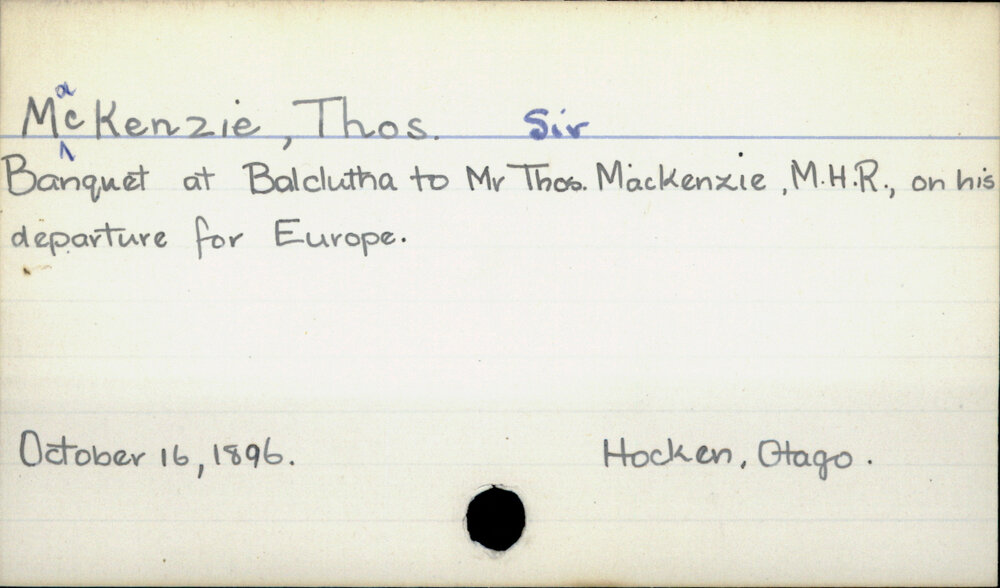 MacKenzie, Thos. Sir
Banquet at Balclutha to Mr Thos. Mackenzie, M.H.R., on his
departure for Europe.
October 16, 1896. Hocken, Otago.